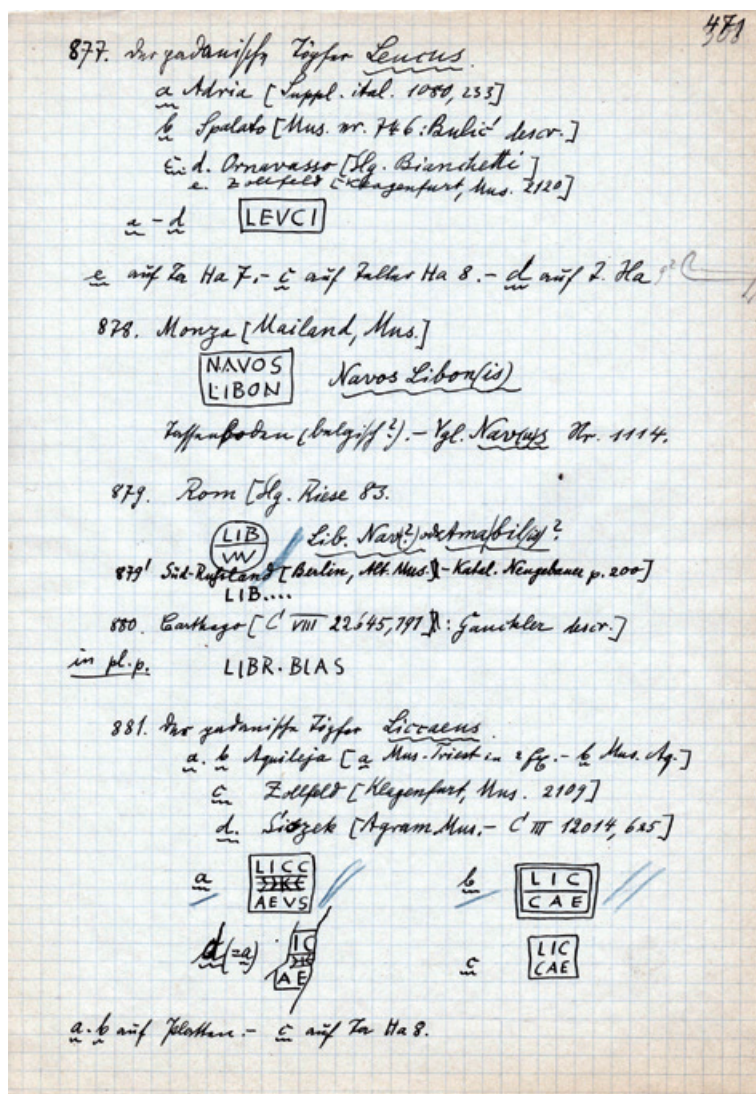 471
877. Der padanische Töpfer Leucus.
a Adria [Suppl. ital. 1080, 233]
b Spalato [Mus. nr. 746: Bulić descr.]
c. d. Ornavasso [Slg. Bianchetti]
e. Zollfeld [Klagenfurt, Mus. 2120]
a - d LEVCI
e auf Ta Ha 7. - c auf Teller Ha 8. - d auf T. Ha
878. Monza [Mailand, Mus.]
NAVOS
LIBON Navos Libon(is)
Tassenboden (belgisch?). - Vgl. Nav(us) Nr. 1114.
879. Rom [Slg. Riese 83.
LIB Lib. Nav(?) oder Ama)bil(is)?
VVV
879' Süd-Rußland [Berlin, Alt. Mus. - Katal. Neugebauer p. 200]
LIB....
880. Carthago [C VIII 22645,191: Gauckler descr.]
in pl. p. LIBR.BLAS
881. Der padanische Töpfer Liccaeus.
a. b Aquileja [a Mus. Triest in 2 Ex. - b Mus. Aq.]
c Zollfeld [Klagenfurt, Mus. 2109]
d. Siszek [Agram. Mus. - C III 12014, 625]
a LICC
AEVS
b LIC
CAE
d (=a) IC
AE
c LIC
CAE
a. b auf Platten. - c auf Ta Ha 8.